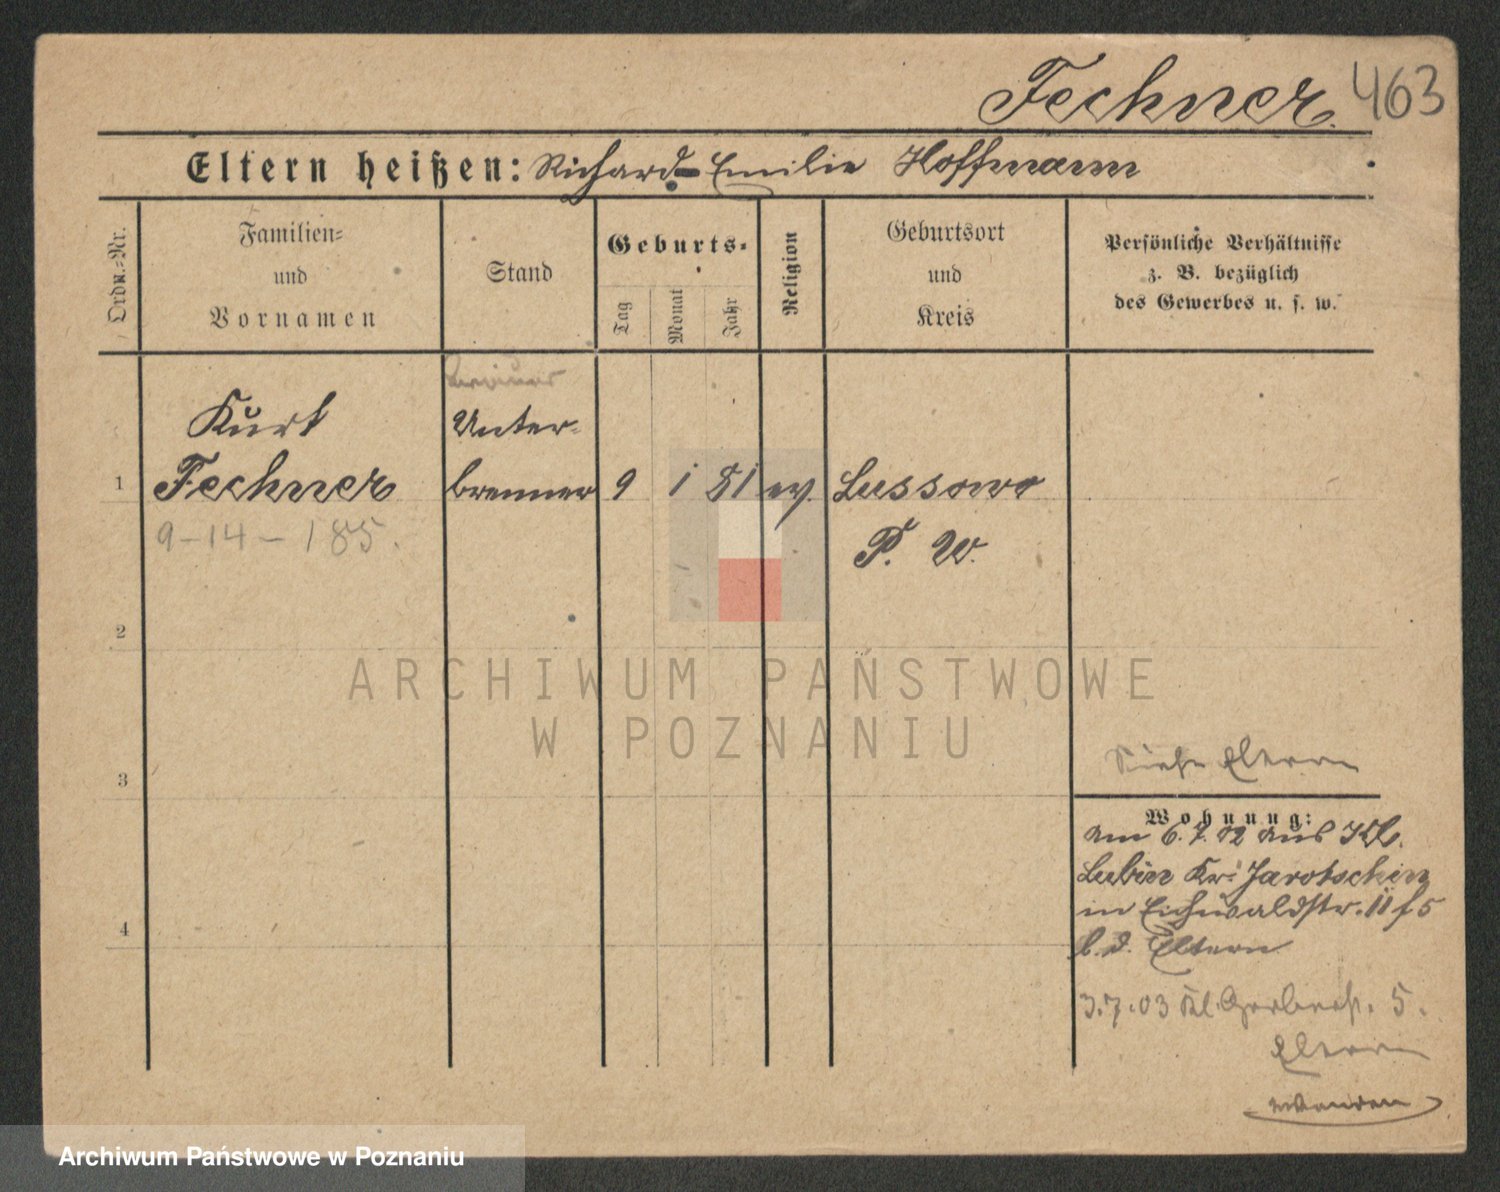 Fechner. 463
Eltern heißen: Richard - Emilie Hoffmann
Ordn.-Nr.
Familien-
und
Vornamen
Stand
Geburts-
Tag
Monat
Jahr
Religion
Geburtsort
und
Kreis
Persönliche Verhältnisse
z. B. bezüglich
des Gewerbes u. s. w.
Kurt
Unter-
1 Fechner brenner 9 1 81 ev. Lussowo
9-14-185.
P. W.
2
3
4
Siehe Eltern
Wohnung:
am 6.7.02 aus Kl.
Lubin Kr. Jarotschin
in Eichwaldstr. 11 f 5
b. d. Eltern
3.7.03 Kl. Gerberstr. 5.
Eltern
ARCHIWUM PAŃSTWOWE
W POZNANIU
Archiwum Państwowe w Poznaniu